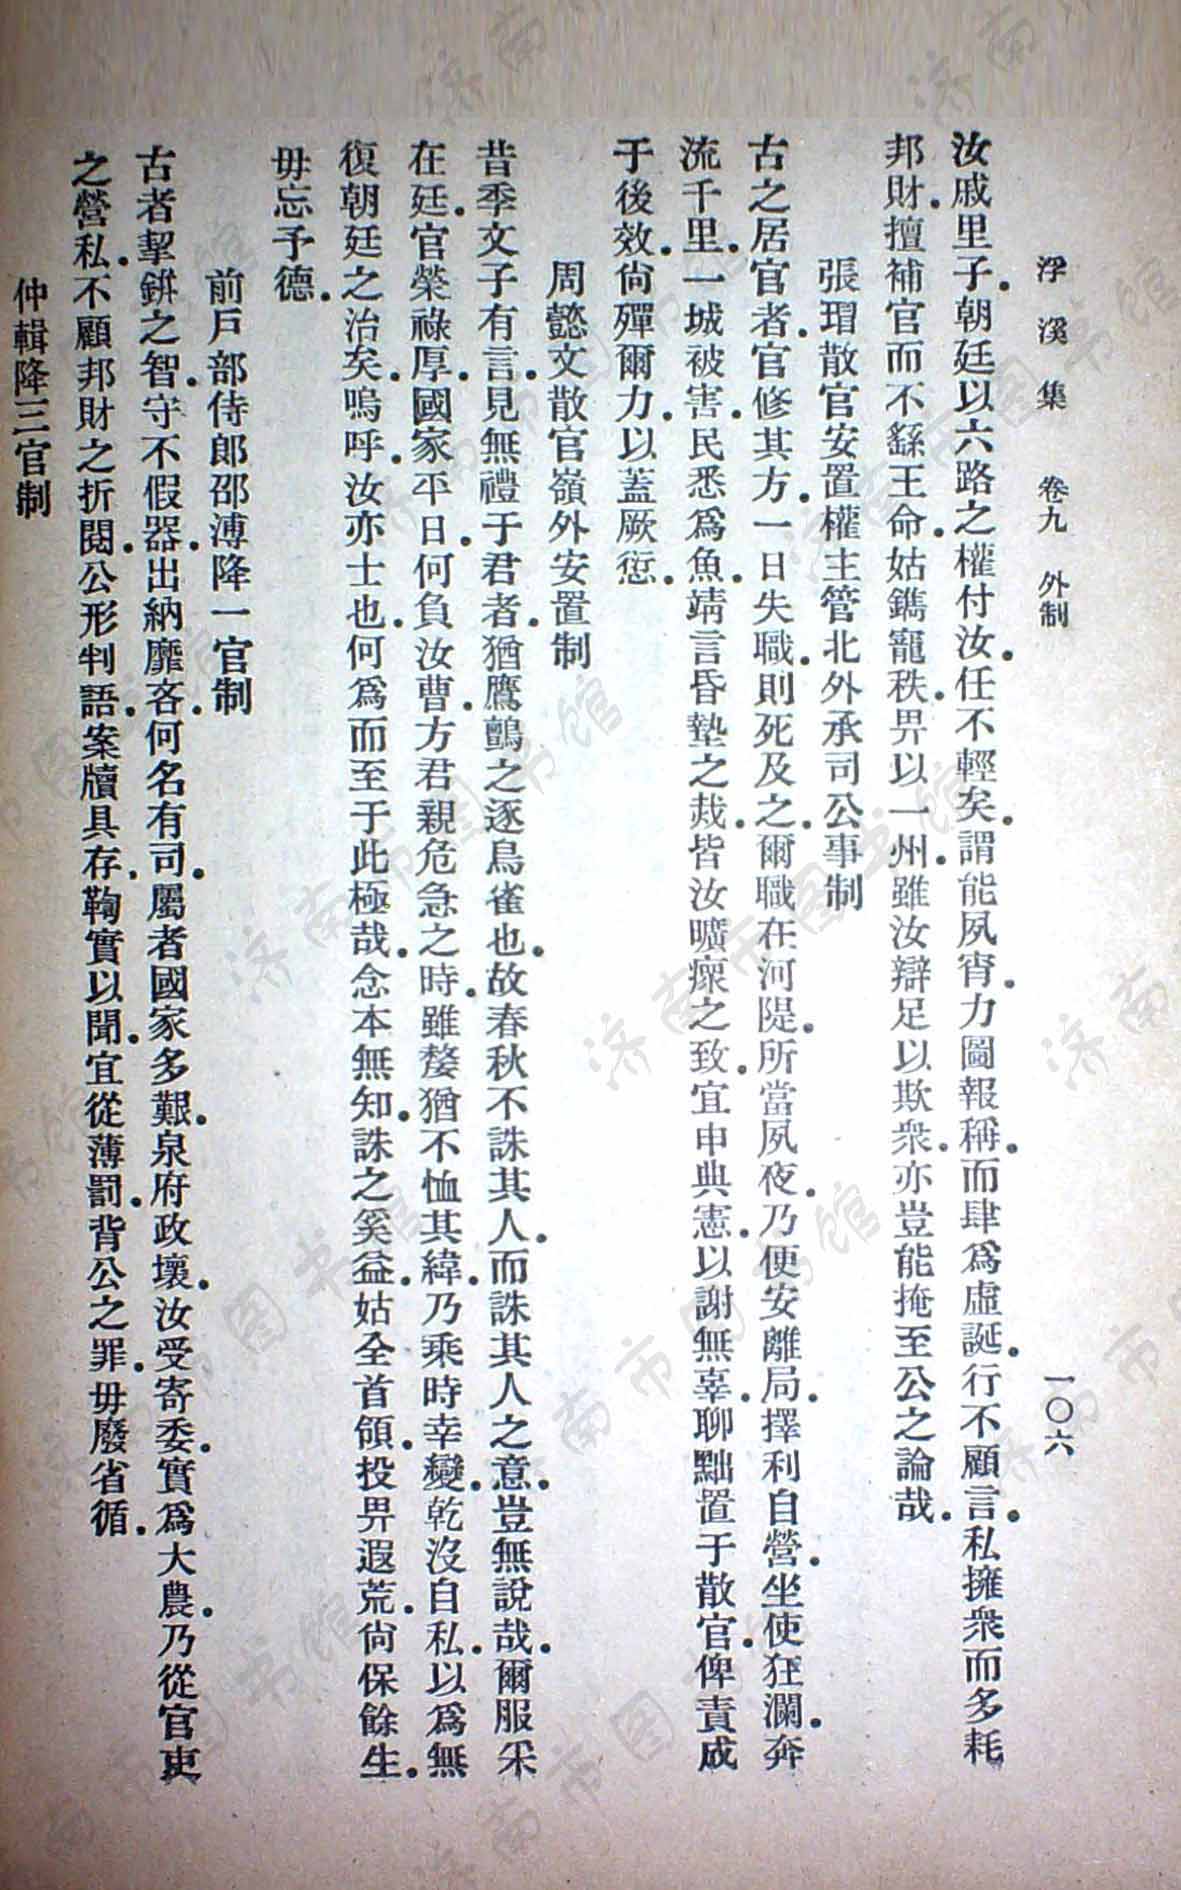 浮溪集 卷九 外制 一〇六
汝戚里子.朝廷以六路之權付汝.任不輕矣.謂能夙宵力圖報稱.而肆爲虛誕.行不顧言.私擁衆而多耗
邦財.擅補官而不繇王命.姑鐫寵秩.畀以一州.雖汝辯足以欺衆.亦豈能掩至公之論哉.
張瑁散官安置權主管北外承司公事制
古之居官者.官修其方.一日失職.則死及之.爾職在河隄.所當夙夜.乃便安離局.擇利自營.坐使狂瀾.奔
流千里.一城被害.民悉爲魚.靖言昏墊之烖.皆汝曠瘝之致.宜申典憲.以謝無辜.聊黜置于散官.俾責成
于後效.尙殫爾力.以蓋厥愆.
周懿文散官嶺外安置制
昔季文子有言.見無禮于君者.猶鷹鸇之逐鳥雀也.故春秋不誅其人.而誅其人之意.豈無說哉.爾服采
在廷.官榮祿厚.國家平日.何負汝曹.方君親危急之時.雖嫠猶不恤其緯.乃乘時幸變.乾沒自私.以爲無
復朝廷之治矣.嗚呼.汝亦士也.何爲而至于此極哉.念本無知.誅之奚益.姑全首領.投畀遐荒.尙保餘生.
毋忘予德.
前戶部侍郎邵溥降一官制
古者挈缾之智.守不假器.出納靡吝.何名有司.屬者國家多艱.泉府政壞.汝受寄委.實爲大農.乃從官吏
之營私.不顧邦財之折閱.公形判語.案牘具存.鞫實以聞.宜從薄罰.背公之罪.毋廢省循.
仲輯降三官制